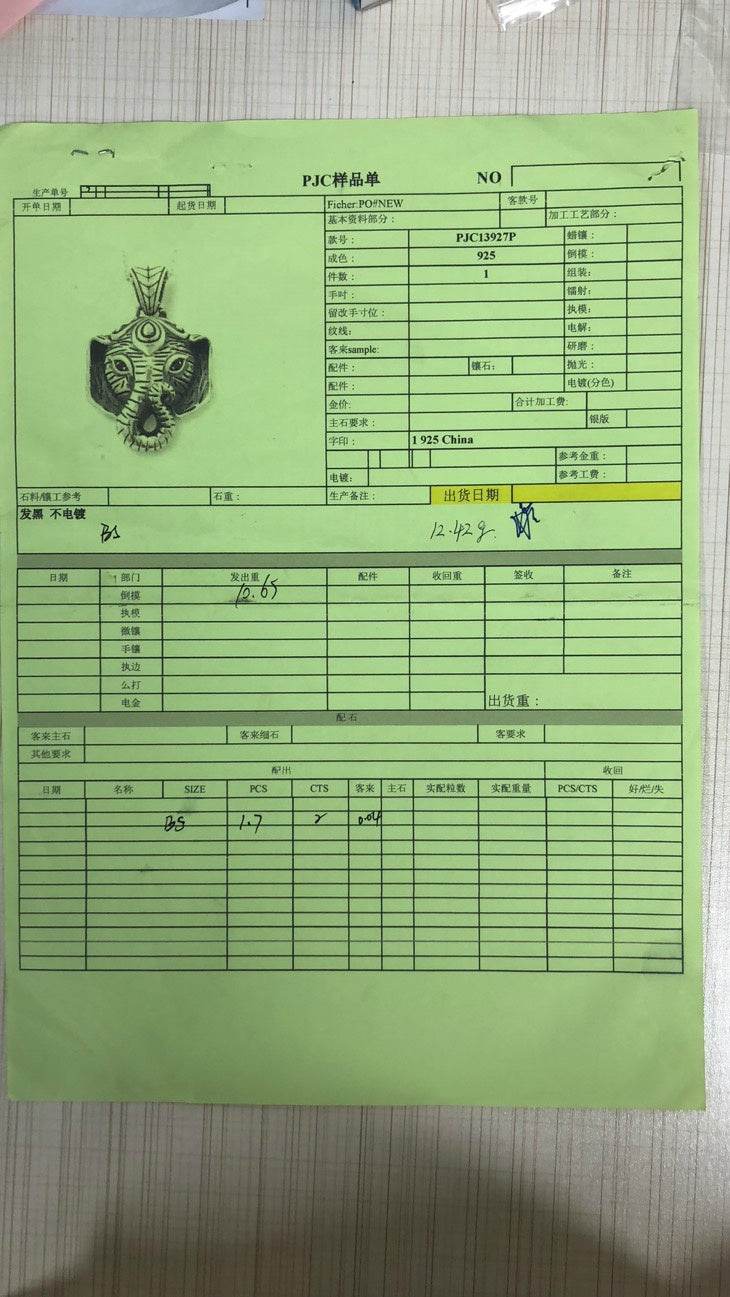 PJC样品单 NO
生产单号
开单日期 起货日期 Ficher:PO#NEW 客款号
基本资料部分： 加工工艺部分：
款号： PJC13927P 蜡镶：
成色： 925 倒摸：
件数： 1 组装：
手吋： 镭射：
留改手寸位： 执模：
纹线： 电解：
客来sample: 研磨：
配件： 镶石： 抛光：
配件： 电镀(分色)
金价: 合计加工费:
主石要求： 银版
字印： 1 925 China
参考金重：
电镀： 参考工费：
石料/镶工参考 石重： 生产备注： 出货日期
发黑 不电镀
BS 12.42g
日期 部门 发出重 配件 收回重 签收 备注
倒摸 10.65
执模
微镶
手镶
执边
么打
电金 出货重：
配石
客来主石 客来细石 客要求
其他要求
配出 收回
日期 名称 SIZE PCS CTS 客来 主石 实配粒数 实配重量 PCS/CTS 好/烂/失
BS 1.7 2 0.04